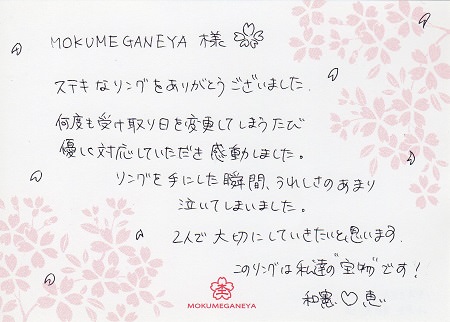 MOKUMEGANEYA 様
ステキなリングをありがとうございました.
何度も受け取り日を変更してしまうたび
優しく対応していただき感動しました。
リングを手にした瞬間、うれしさのあまり
泣いてしまいました。
2人で大切にしていきたいと思います.
このリングは私達の"宝物"です!
和憲♡恵
MOKUMEGANEYA